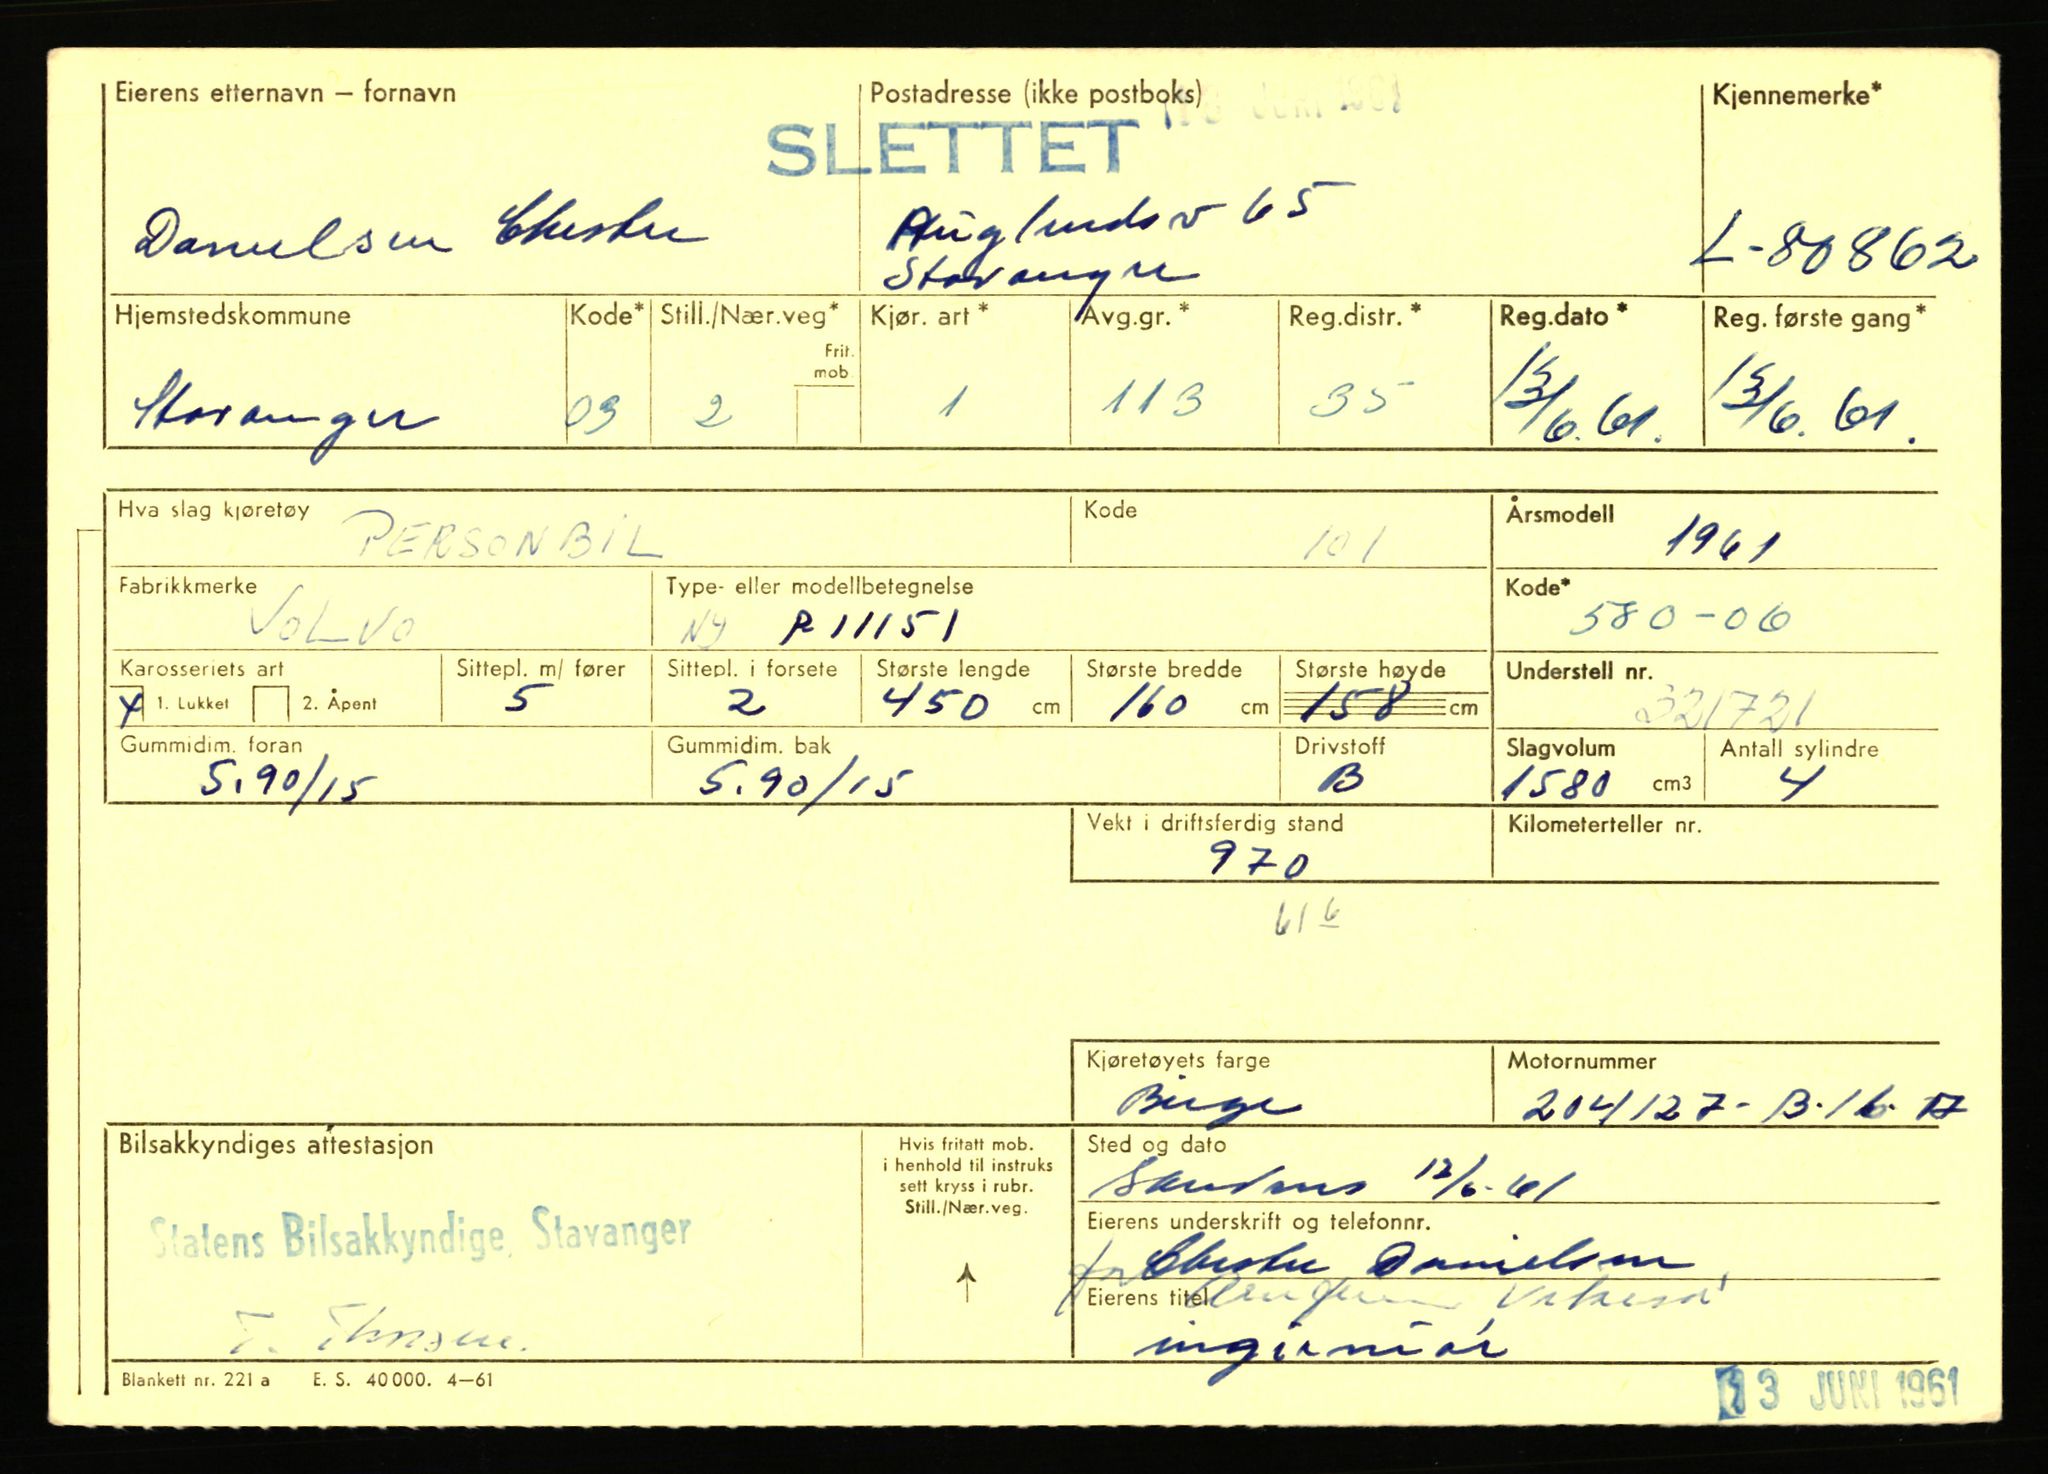 Eierens etternavn – fornavn Postadresse (ikke postboks) JUNI 1961 Kjennemerke*
SLETTET
Danielsen Chester Auglendsv 65 L-80862
Stavanger
Hjemstedskommune Kode* Still./Nær.veg* Kjør. art* Avg.gr.* Reg.distr.* Reg.dato* Reg. første gang*
Frit.
mob.
Stavanger 03 2 1 113 35 13/6.61. 13/6.61.
Hva slag kjøretøy PERSONBIL Kode 101 Årsmodell 1961
Fabrikkmerke VOLVO Type- eller modellbetegnelse NY P 11151 Kode* 580-06
Karosseriets art Sittepl. m/ fører Sittepl. i forsete Største lengde Største bredde Største høyde Understell nr.
x 1. Lukket 2. Åpent 5 2 450 cm 160 cm 158 cm 321721
Gummidim. foran Gummidim. bak Drivstoff Slagvolum Antall sylindre
5.90/15 5.90/15 B 1580 cm3 4
Vekt i driftsferdig stand Kilometerteller nr.
970
61 6
Kjøretøyets farge Motornummer
Beige 204127-B.16.
Bilsakkyndiges attestasjon Hvis fritatt mob. Sted og dato
i henhold til instruks
sett kryss i rubr.
Still./Nær.veg.
Sandnes 12/6-61
Statens Bilsakkyndige, Stavanger
Eierens underskrift og telefonnr.
for Chester Danielsen
Eierens titel
T. ingeniør
Blankett nr. 221 a E. S. 40 000. 4–61
13 JUNI 1961